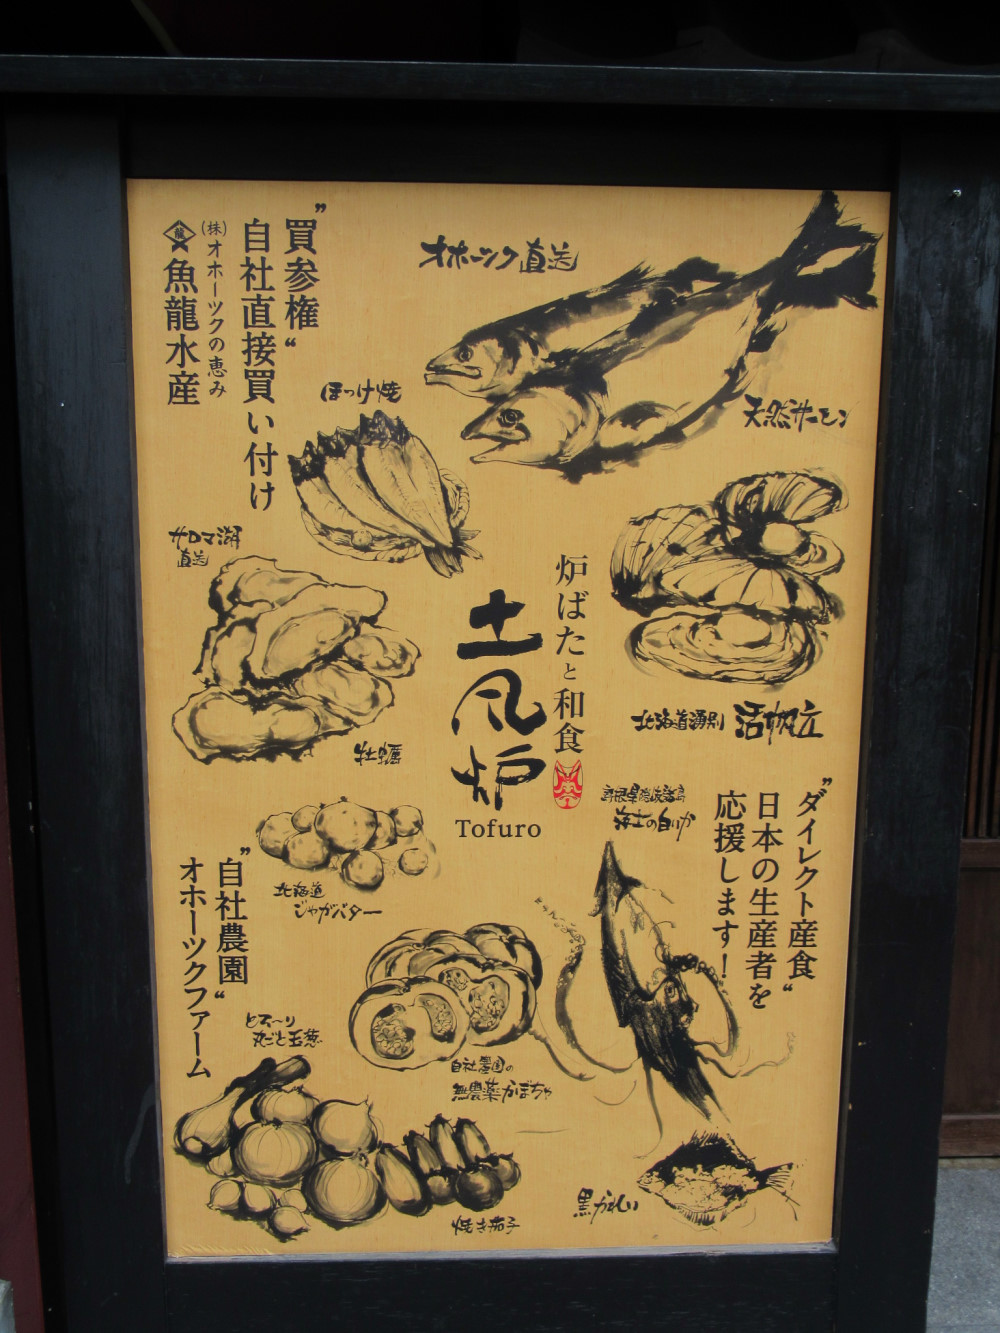 ”買参権“
自社直接買い付け
(株)オホーツクの恵み
龍
魚龍水産
オホーツク直送
天然サーモン
ほっけ焼
サロマ湖
直送
牡蠣
炉ばたと和食
土風炉
Tofuro
北海道湧別 活帆立
”ダイレクト産食“
日本の生産者を
応援します!
島根県隠岐諸島
海士の白いか
北海道
じゃがバター
”自社農園“
オホーツクファーム
とろ〜り
丸ごと玉葱
自社農園の
無農薬かぼちゃ
焼き茄子
黒がれい